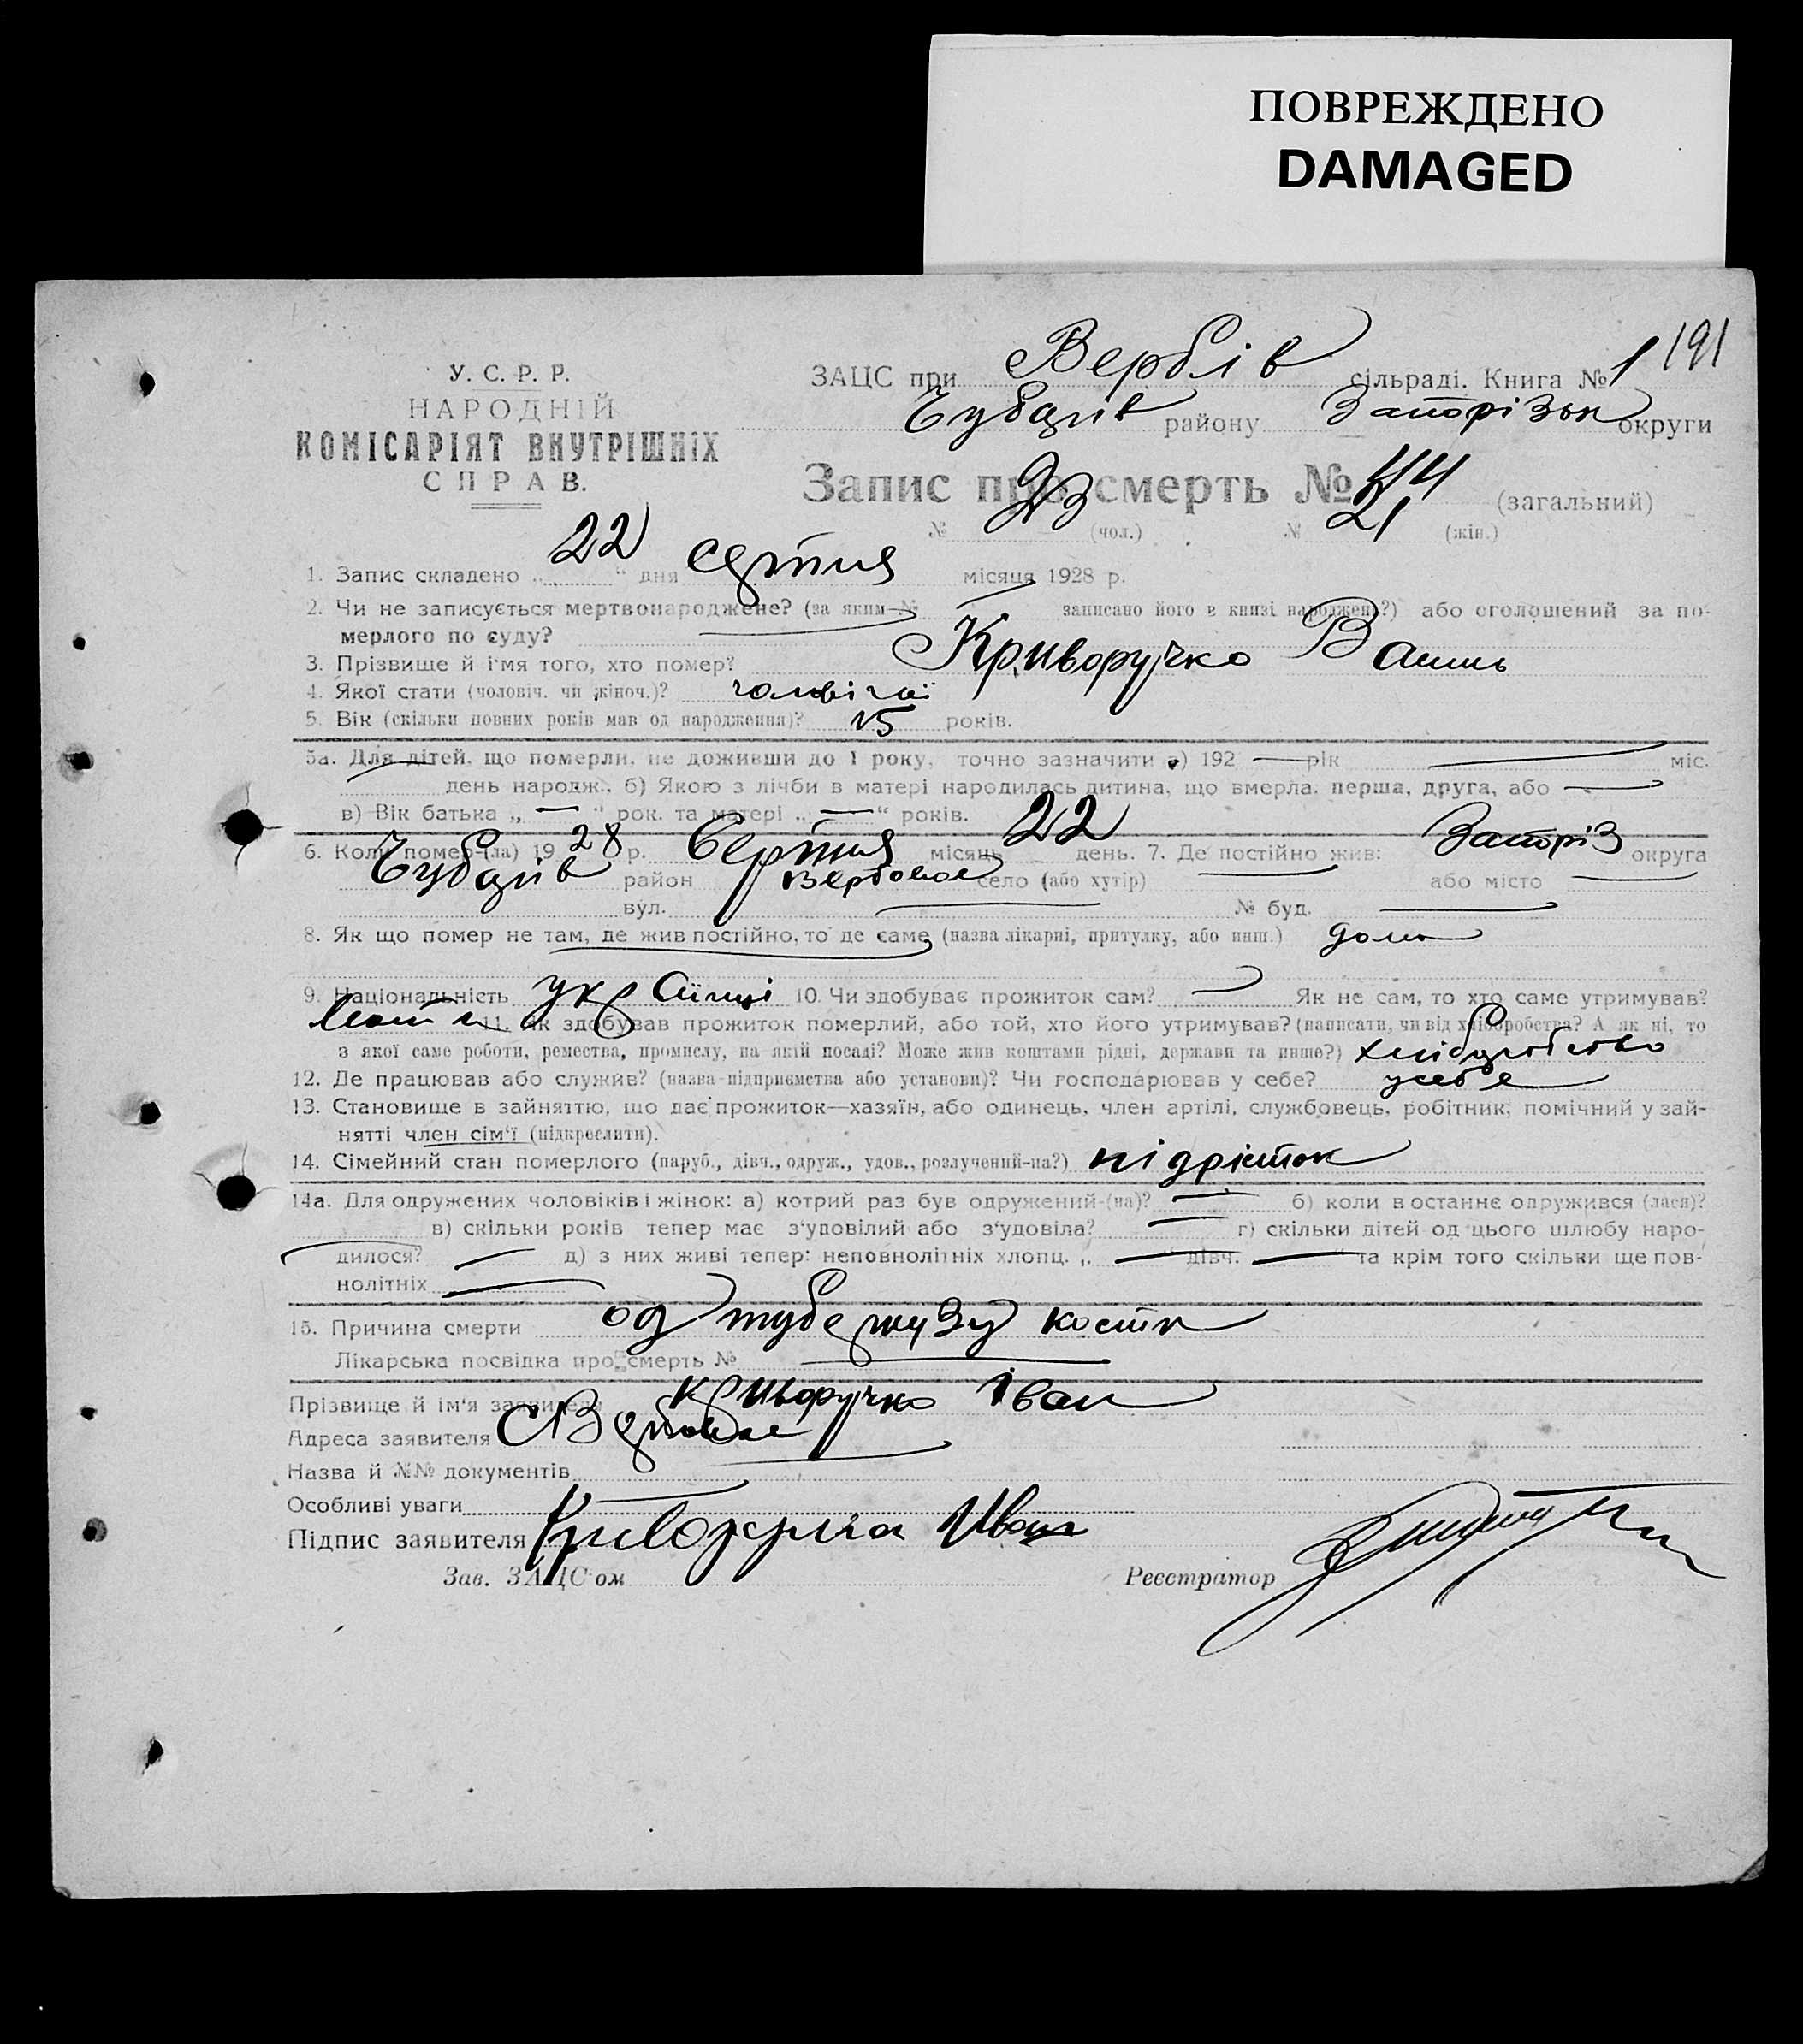 ПОВРЕЖДЕНО
DAMAGED
191
У. С. Р. Р.
НАРОДНІЙ
КОМІСАРІЯТ ВНУТРІШНІХ
СПРАВ.
ЗАЦС при Вербів сільраді. Книга № 1
Чубарів району Запорізьк округи
Запис про смерть № 44 (загальний)
№ 23 (чол.) № 21 (жін.)
1. Запис складено „ 22 “ дня серпня місяця 1928 р.
2. Чи не записується мертвонароджене? (за яким № — записано його в книзі народжень?) або оголошений за по-
мерлого по суду?
3. Прізвище й ім'я того, хто помер? Криворучко
4. Якої стати (чоловіч. чи жіноч.)? чоловічої
5. Вік (скільки повних років мав од народження)? 15 років.
5а. Для дітей, що померли, не доживши до 1 року, точно зазначити а) 192 — рік — міс.
день народж.. б) Якою з лічби в матері народилась дитина, що вмерла, перша, друга, або —
в) Вік батька „ — “ рок. та матері „ — “ років.
6. Коли помер-(ла) 1928 р. Серпня місяць 22 день. 7. Де постійно жив: Запоріз округа
Чубарів район Вербовое село (або хутір) — або місто —
вул. — № буд. —
8. Як що помер не там, де жив постійно, то де саме (назва лікарні, притулку, або инш.) дома
9. Національність українці 10. Чи здобуває прожиток сам? — Як не сам, то хто саме утримував?
11. Як здобував прожиток померлий, або той, хто його утримував? (написати, чи від хліборобства? А як ні, то
з якої саме роботи, ремества, промислу, на якій посаді? Може жив коштами рідні, держави та инше?) хліборобство
12. Де працював або служив? (назва підприємства або установи)? Чи господарював у себе? у себе
13. Становище в зайняттю, що дає прожиток—хазяїн, або одинець, член артілі, службовець, робітник; помічний у зай-
нятті член сім'ї (підкреслити).
14. Сімейний стан померлого (паруб., дівч., одруж., удов., розлучений-на?) підрісток
14а. Для одружених чоловіків і жінок: а) котрий раз був одружений-(на)? — б) коли востаннє одружився (лася)?
в) скільки років тепер має з'удовілий або з'удовіла? — г) скільки дітей од цього шлюбу наро-
дилося? — д) з них живі тепер: неповнолітніх хлопц. „ — “ дівч. — “ та крім того скільки ще пов-
нолітніх —
15. Причина смерти од туберкузу кости
Лікарська посвідка про смерть № —
Прізвище й ім'я заявителя Криворучко Іван
Адреса заявителя с Вербовое
Назва й №№ документів
Особливі уваги
Підпис заявителя Иван
Зав. ЗАЦС'ом
Реєстратор